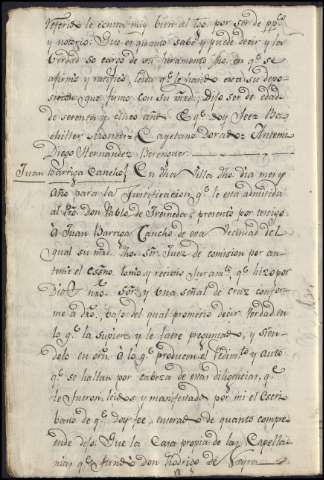 referido le consta muy bien al tgo. por ser de pp.co
y notorio. Que es quanto sabe y puede decir y la
verdad so cargo de su juramento fho. en q.e se
afirmó y ratificó, leida q.e le fue esta su depo
sicion que firmó con su mrd. Dijo ser de edad
de setenta y cinco añs. = Ba
chiller Cayetano = Antemi
Diego Hernandez
Juan Barriga Cancho / En dha Villa dho. dia mes y
Año para la Justificacion q.e le esta admitida
al Pro. Don Pablo de presento por testigo
A Juan Barriga Cancho de esta Vecindad del
qual su mrd. dho. Sor. Juez de comision por an
temi el Essno. tomo y recivio juram.to q.e hizo por
Dios nro. Sor. y una señal de cruz confor
me a dro. vajo del qual prometio decir verdad en
lo q.e la supiere y le fuere preguntado, y sien
dolo en orn. a lo q.e producen el Pedim.to y auto
q.e se hallan por cabeza de estas diligencias, q.e
le fueron leidos y manifestados por mi el Escri
bano de q.e doy fee, enterado de quanto compre
ende dijo: Que la Casa propia de las Capella
nias q.e fundó don Rodrigo de